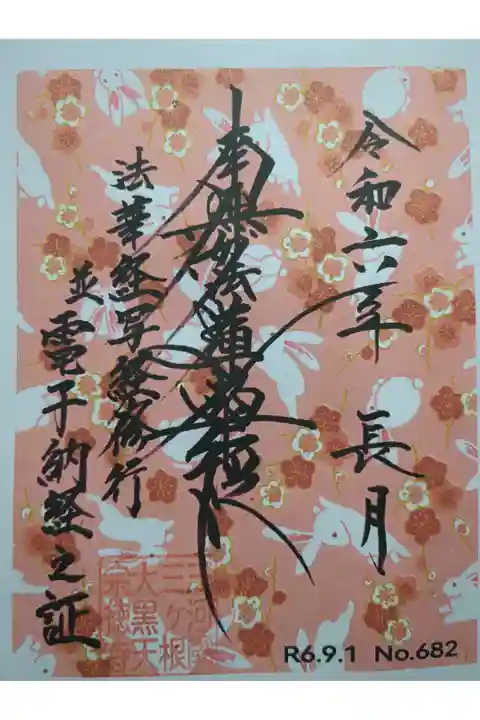 令和六年 長月
南無妙法蓮華経
法華経写経修行
並電子納経之証
三河
三ヶ根
大黒天
R6.9.1 No.682